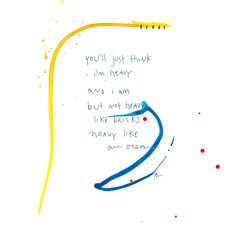 you'll just think
i'm heavy
and i am
but not heavy
like bricks
heavy like
an ocean